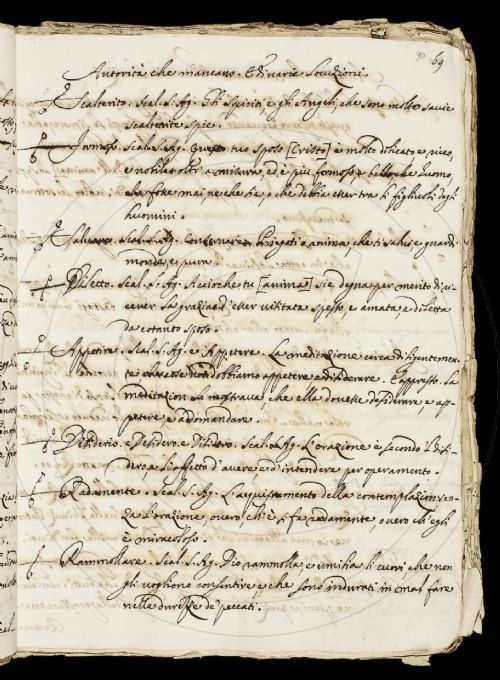 69
Autorità che mancano. E di varie Locuzioni.
Scalterito. Scal. S. Ag. Gli Spiriti, e gli Angeli, che sono molto savie
scalterite spie.
Formoso. Scal. S. Ag. Questo tuo sposo [Cristo] è molto dilicato e ricco,
e nobile oltr' a misura, ed è più formoso e bello che huomo,
che fosse mai nè che sia, o che debbia esser tra li figliuoli degli
huomini.
Salvare. Scal. S. Ag. Conservare. Priegoti o anima, che ti salvi e guardi
monda, e pura.
Diletto. Scal. S. Ag. Accioche tu [anima] sie degna per merito di ri
cever la grazia d'esser visitata spesso, e amata, e diletta
da cotanto sposo.
Appetire. Scal. S. Ag. e Appetere. La meditazione cerca diligentemen
te che cosa noi dobbiamo appetere e disiderare. E appresso. La
meditazion la mostrava, che ella dovesse disiderare e ap
petere, e addomandare.
Desiderio. e Desidero. e Disidero. Scal. S. Ag. L'orazione è secondo 'l disi
dero, e l'affetto d'avere, e d'intendere per operamento.
Radamente. Scal. S. Ag. L'acquistamento della contemplazion sen
za l'orazione, overo ch'è si fa radamente, overo ch'egli
è miracoloso.
Rammollare. Scal. S. Ag. Dio rammolla e umilia li cuori, che non
gli vogliono consentire, e che sono indurati in mal fare
nelle durizze de' peccati.